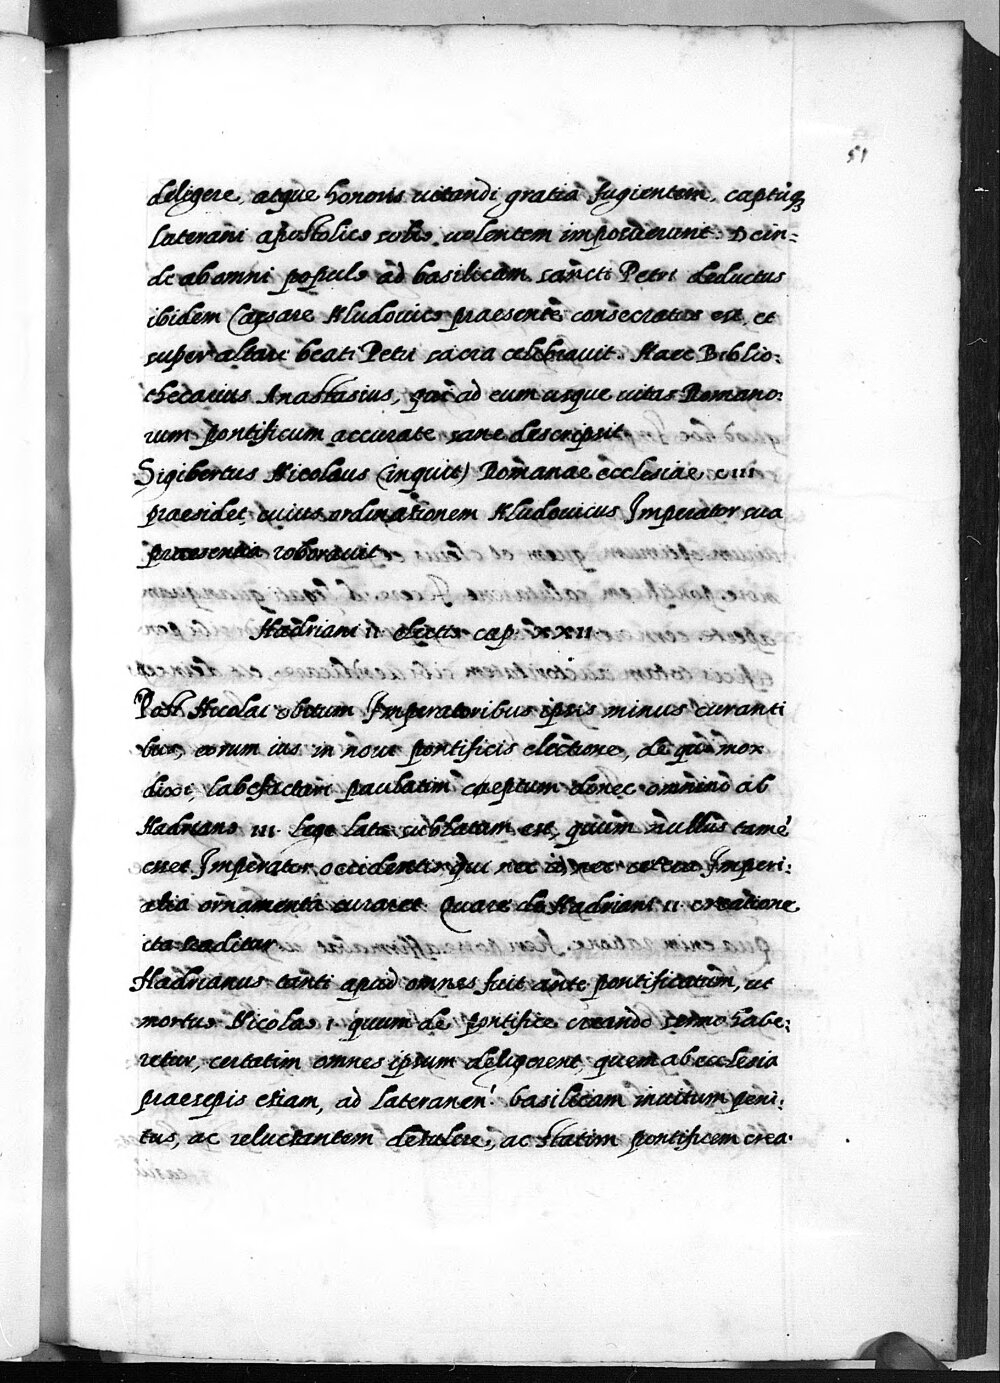 51
deligere, atque honoris uitandi gratia fugientem, captūq;
laterani apostolico solio uolentem imposuerunt. Dein=
de ab omni populo ad basilicam sancti Petri deductus
ibidem Caesare Hludouico praesente consecratus est, et
super altare beati Petri sacra celebrauit. Haec Biblio:
thecarius Anastasius, qui ad eum usque uitas Romano:
rum pontificum accurate sane descripsit.
Sigibertus Nicolaus (inquit) Romanae ecclesiae CIII
praesidet, cuius ordinationem Hludouicus Imperator sua
praesentia roborauit
Hadriani II electio cap. XXII.
Post Nicolai obitum Imperatoribus ipsis minus curanti
bus, eorum ius in noui pontificis electione, de quo mox
dixi, labefactari paulatim caeptum donec omnino ab
Hadriano III lege lata sublatum est, quum nullus tamē
esset Imperator occidentis qui nec Imperi:
alia ornamenta curaret Quare de Hadriani II creatione
ita traditur
Hadrianus tanti apud omnes fuit ante pontificatum, ut
mortuo Nicolao I quum de pontifice creando sermo habe:
retur, certatim omnes ipsum deligerent, quem ab ecclesia
praesepis etiam, ad Lateranen. basilicam inuitum peni:
tus, ac reluctantem detulere, ac statim pontificem crea.